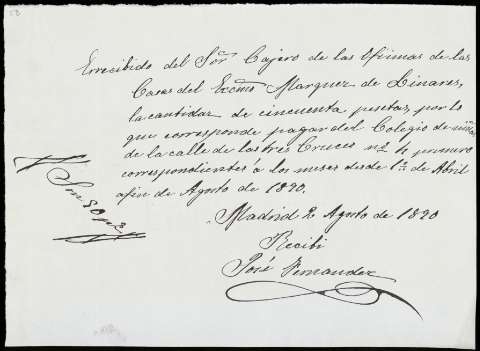 Errecibido del Sor Cajero de las Oficinas de las
Casas del Excmo Marquez de Linares,
la cantidaz de cincuenta pesetas, por lo
que corresponde pagar del Colegio de niñas
de la calle de las tres Cruces nº 4 primero
correspondientes á los meses desde 1º de Abril
afin de Agosto de 1890.
Madrid 2 Agosto de 1890
Recibi
José Fernandez
Son 50 pts